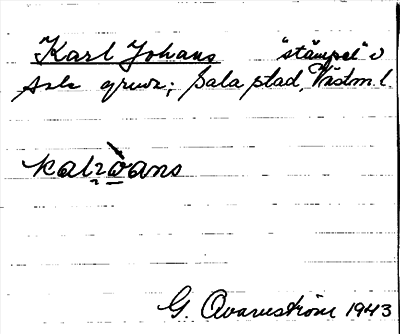 Karl Johans "stämpel" i
Sala gruva; Sala stad, Västm. l.
kalròans
G. Qvarnström 1943